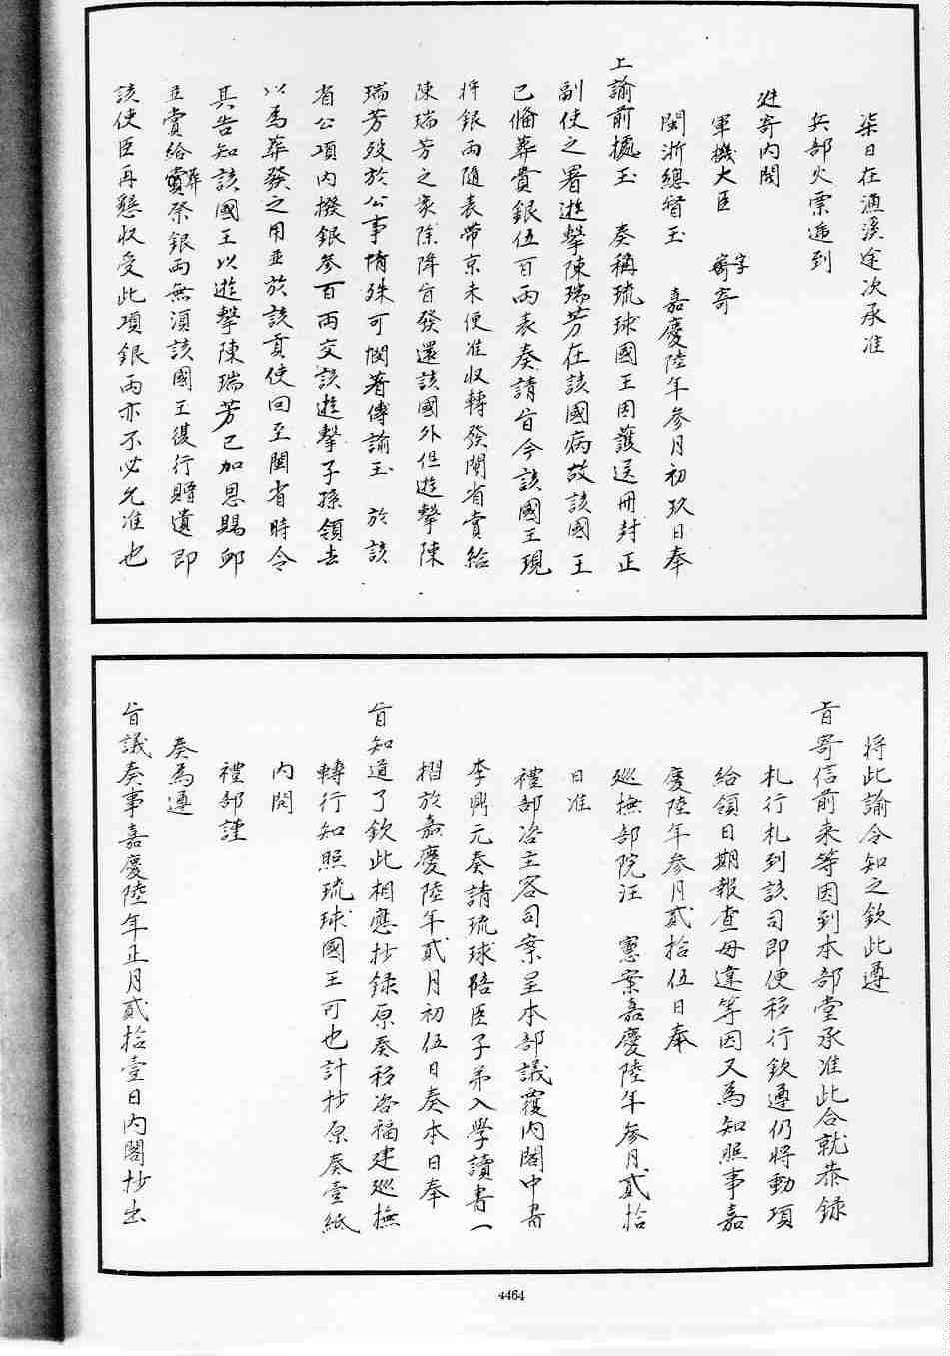 柒日在漁溪途次承准
兵部火票遞到
廷寄內閣
軍機大臣　字寄
閩浙總督玉　嘉慶陸年參月初玖日奉
上諭前據玉　奏稱琉球國王因護送冊封正
副使之署遊擊陳瑞芳在該國病故該國王
已備葬賫銀伍百兩表奏請旨今該國王現
將銀兩隨表帶京未便准收轉發閩省賞給
陳瑞芳之家除降旨發還該國外但遊擊陳
瑞芳歿於公事情殊可憫著傳諭玉　於該
省公項內撥銀參百兩交該遊擊子孫領去
以為葬發之用並於該貢使回至閩省時令
其告知該國王以遊擊陳瑞芳已加恩賜卹
並賞給葬祭銀兩無須該國王復行贈遺即
該使臣再懇收受此項銀兩亦不必允准也
將此諭令知之欽此遵
旨寄信前來等因到本部堂承准此合就恭錄
札行札到該司即便移行欽遵仍將動項
給領日期報查毋違等因又為知照事嘉
慶陸年參月貳拾伍日奉
巡撫部院汪　憲案嘉慶陸年參月貳拾
日准
禮部咨主客司案呈本部議覆內閣中書
李鼎元奏請琉球陪臣子弟入學讀書一
摺於嘉慶陸年貳月初伍日奏本日奉
旨知道了欽此相應抄錄原奏移咨福建巡撫
轉行知照琉球國王可也計抄原奏壹紙
內開
禮部謹
奏為遵
旨議奏事嘉慶陸年正月貳拾壹日內閣抄出
4464